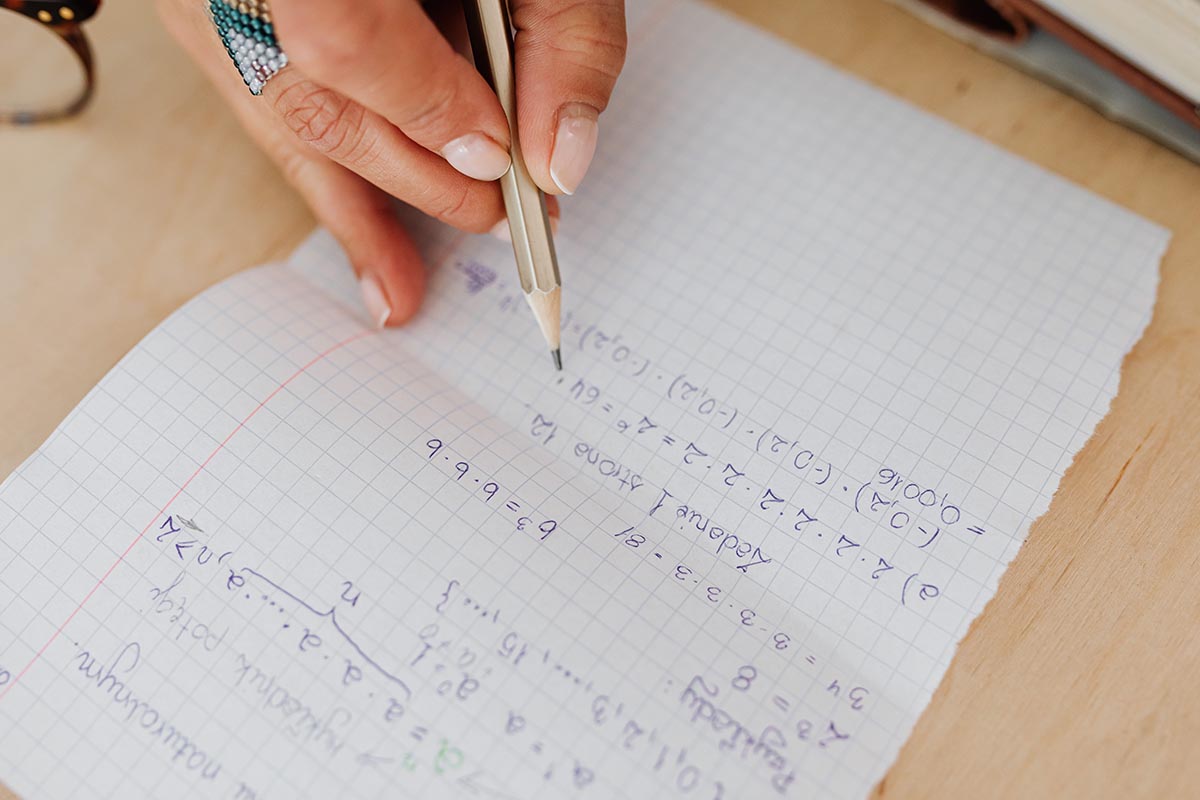 naturalnym.
wykładnik potęgi
aⁿ = a · a · a · .... · a, n ≥ 2
n
a¹ = a
a⁰ = 1
0, 1, 2, 3, ..., 15, ...}
Przykłady:
2³ = 8
3⁴ = 3 · 3 · 3 · 3 = 81
b³ = b · b · b
Zadanie 1 strona 12
a) 2 · 2 · 2 · 2 · 2 · 2 = 2⁶ = 64
(-0,2) · (-0,2) · (-0,2) · (-0,2) =
= 0,0016